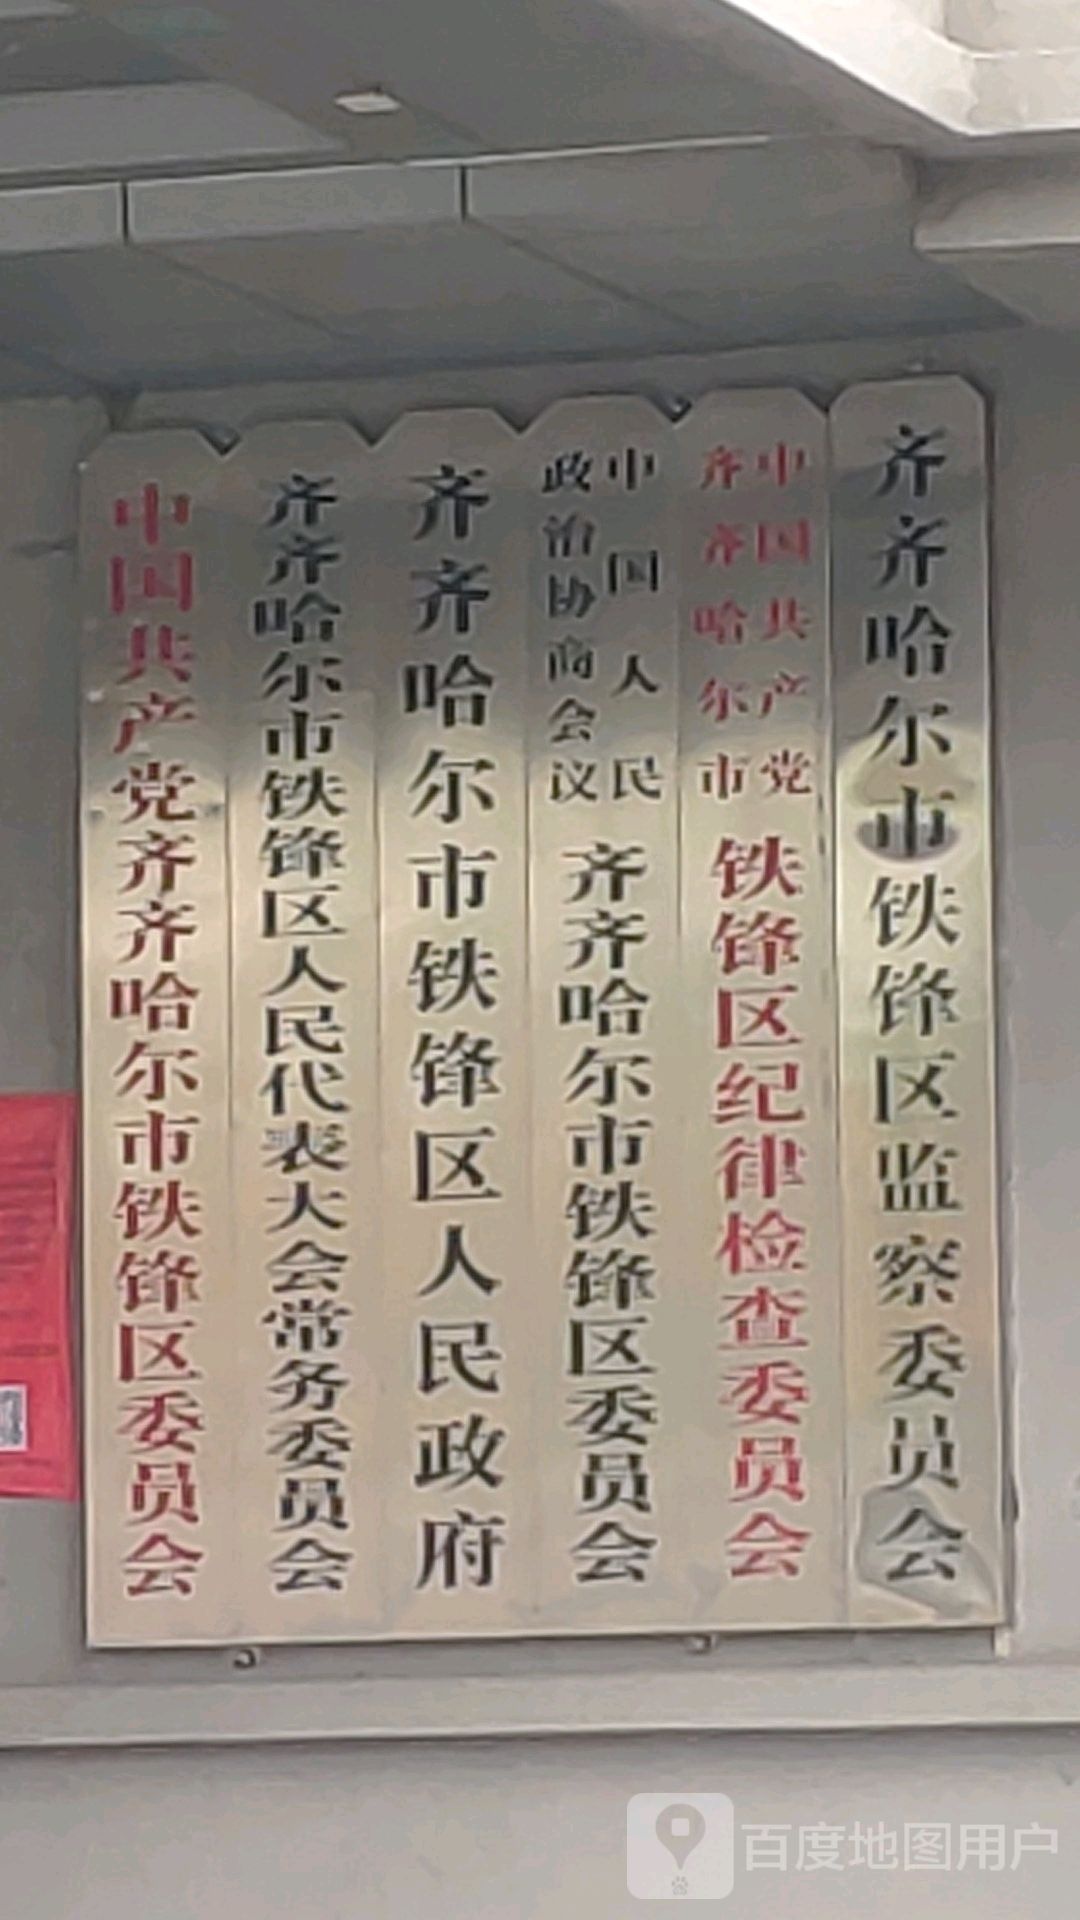 中国共产党齐齐哈尔市铁锋区委员会
齐齐哈尔市铁锋区人民代表大会常务委员会
齐齐哈尔市铁锋区人民政府
中国人民
政治协商会议
齐齐哈尔市铁锋区委员会
中国共产党
齐齐哈尔市
铁锋区纪律检查委员会
齐齐哈尔市铁锋区监察委员会
百度地图用户